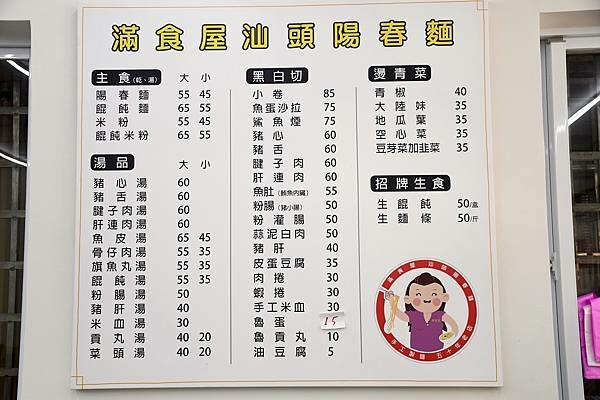 滿食屋汕頭陽春麵
主食(乾、湯) 大 小
陽春麵 55 45
餛飩麵 65 55
米粉 55 45
餛飩米粉 65 55
湯品 大 小
豬心湯 60
豬舌湯 60
腱子肉湯 60
肝連肉湯 60
魚皮湯 65 45
骨仔肉湯 55 35
旗魚丸湯 55 35
餛飩湯 55 35
粉腸湯 50
豬肝湯 40
米血湯 30
貢丸湯 40 20
菜頭湯 40 20
黑白切
小卷 85
魚蛋沙拉 75
鯊魚煙 75
豬心 60
豬舌 60
腱子肉 60
肝連肉 60
魚肚(鮪魚內臟) 55
粉腸(豬小腸) 50
粉灌腸 50
蒜泥白肉 50
豬肝 40
皮蛋豆腐 35
肉捲 30
蝦捲 30
手工米血 30
魯蛋 15
魯貢丸 10
油豆腐 5
燙青菜
青椒 40
大陸妹 35
地瓜葉 35
空心菜 35
豆芽菜加韭菜 35
招牌生食
生餛飩 50/盒
生麵條 50/斤
滿食屋 汕頭陽春麵
手工製麵 五十年老店